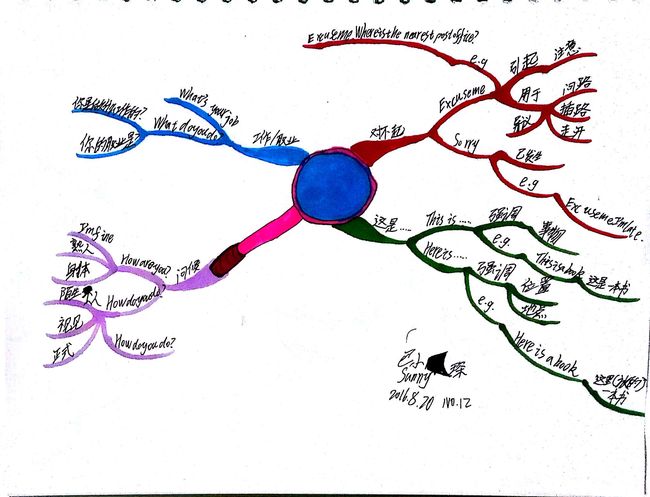 Excuse me Where is the nearest post office?
e.g
引起
注意
Excuse me
用于
问路
插路
走开
对不起
Sorry
已发生
e.g
Excuse me I'm late.
What's your job
What do you do?
工作/职业
你的职业是?
这是……
This is ……
强调
事物
e.g.
This is a book
这是一本书
Here is ……
强调
位置
地点
e.g.
Here is a book
这是(放的)
一本书
I'm fine
熟人
身体
How are you?
问候
陌生人
How do you do?
初见
正式
How do you do?
Sunny
2016.8.20 NO.12